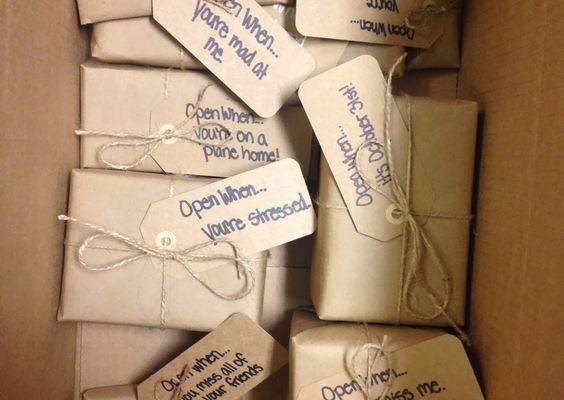 Open When...
you're mad at
me.
Open When...
you're
Open When...
you're on a
plane home!
Open When...
It's October 31st!
Open When...
you're stressed.
Open when...
you miss all of
your friends
Open When...
miss me.